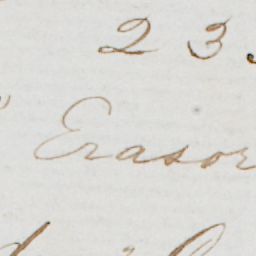 23
Erasor